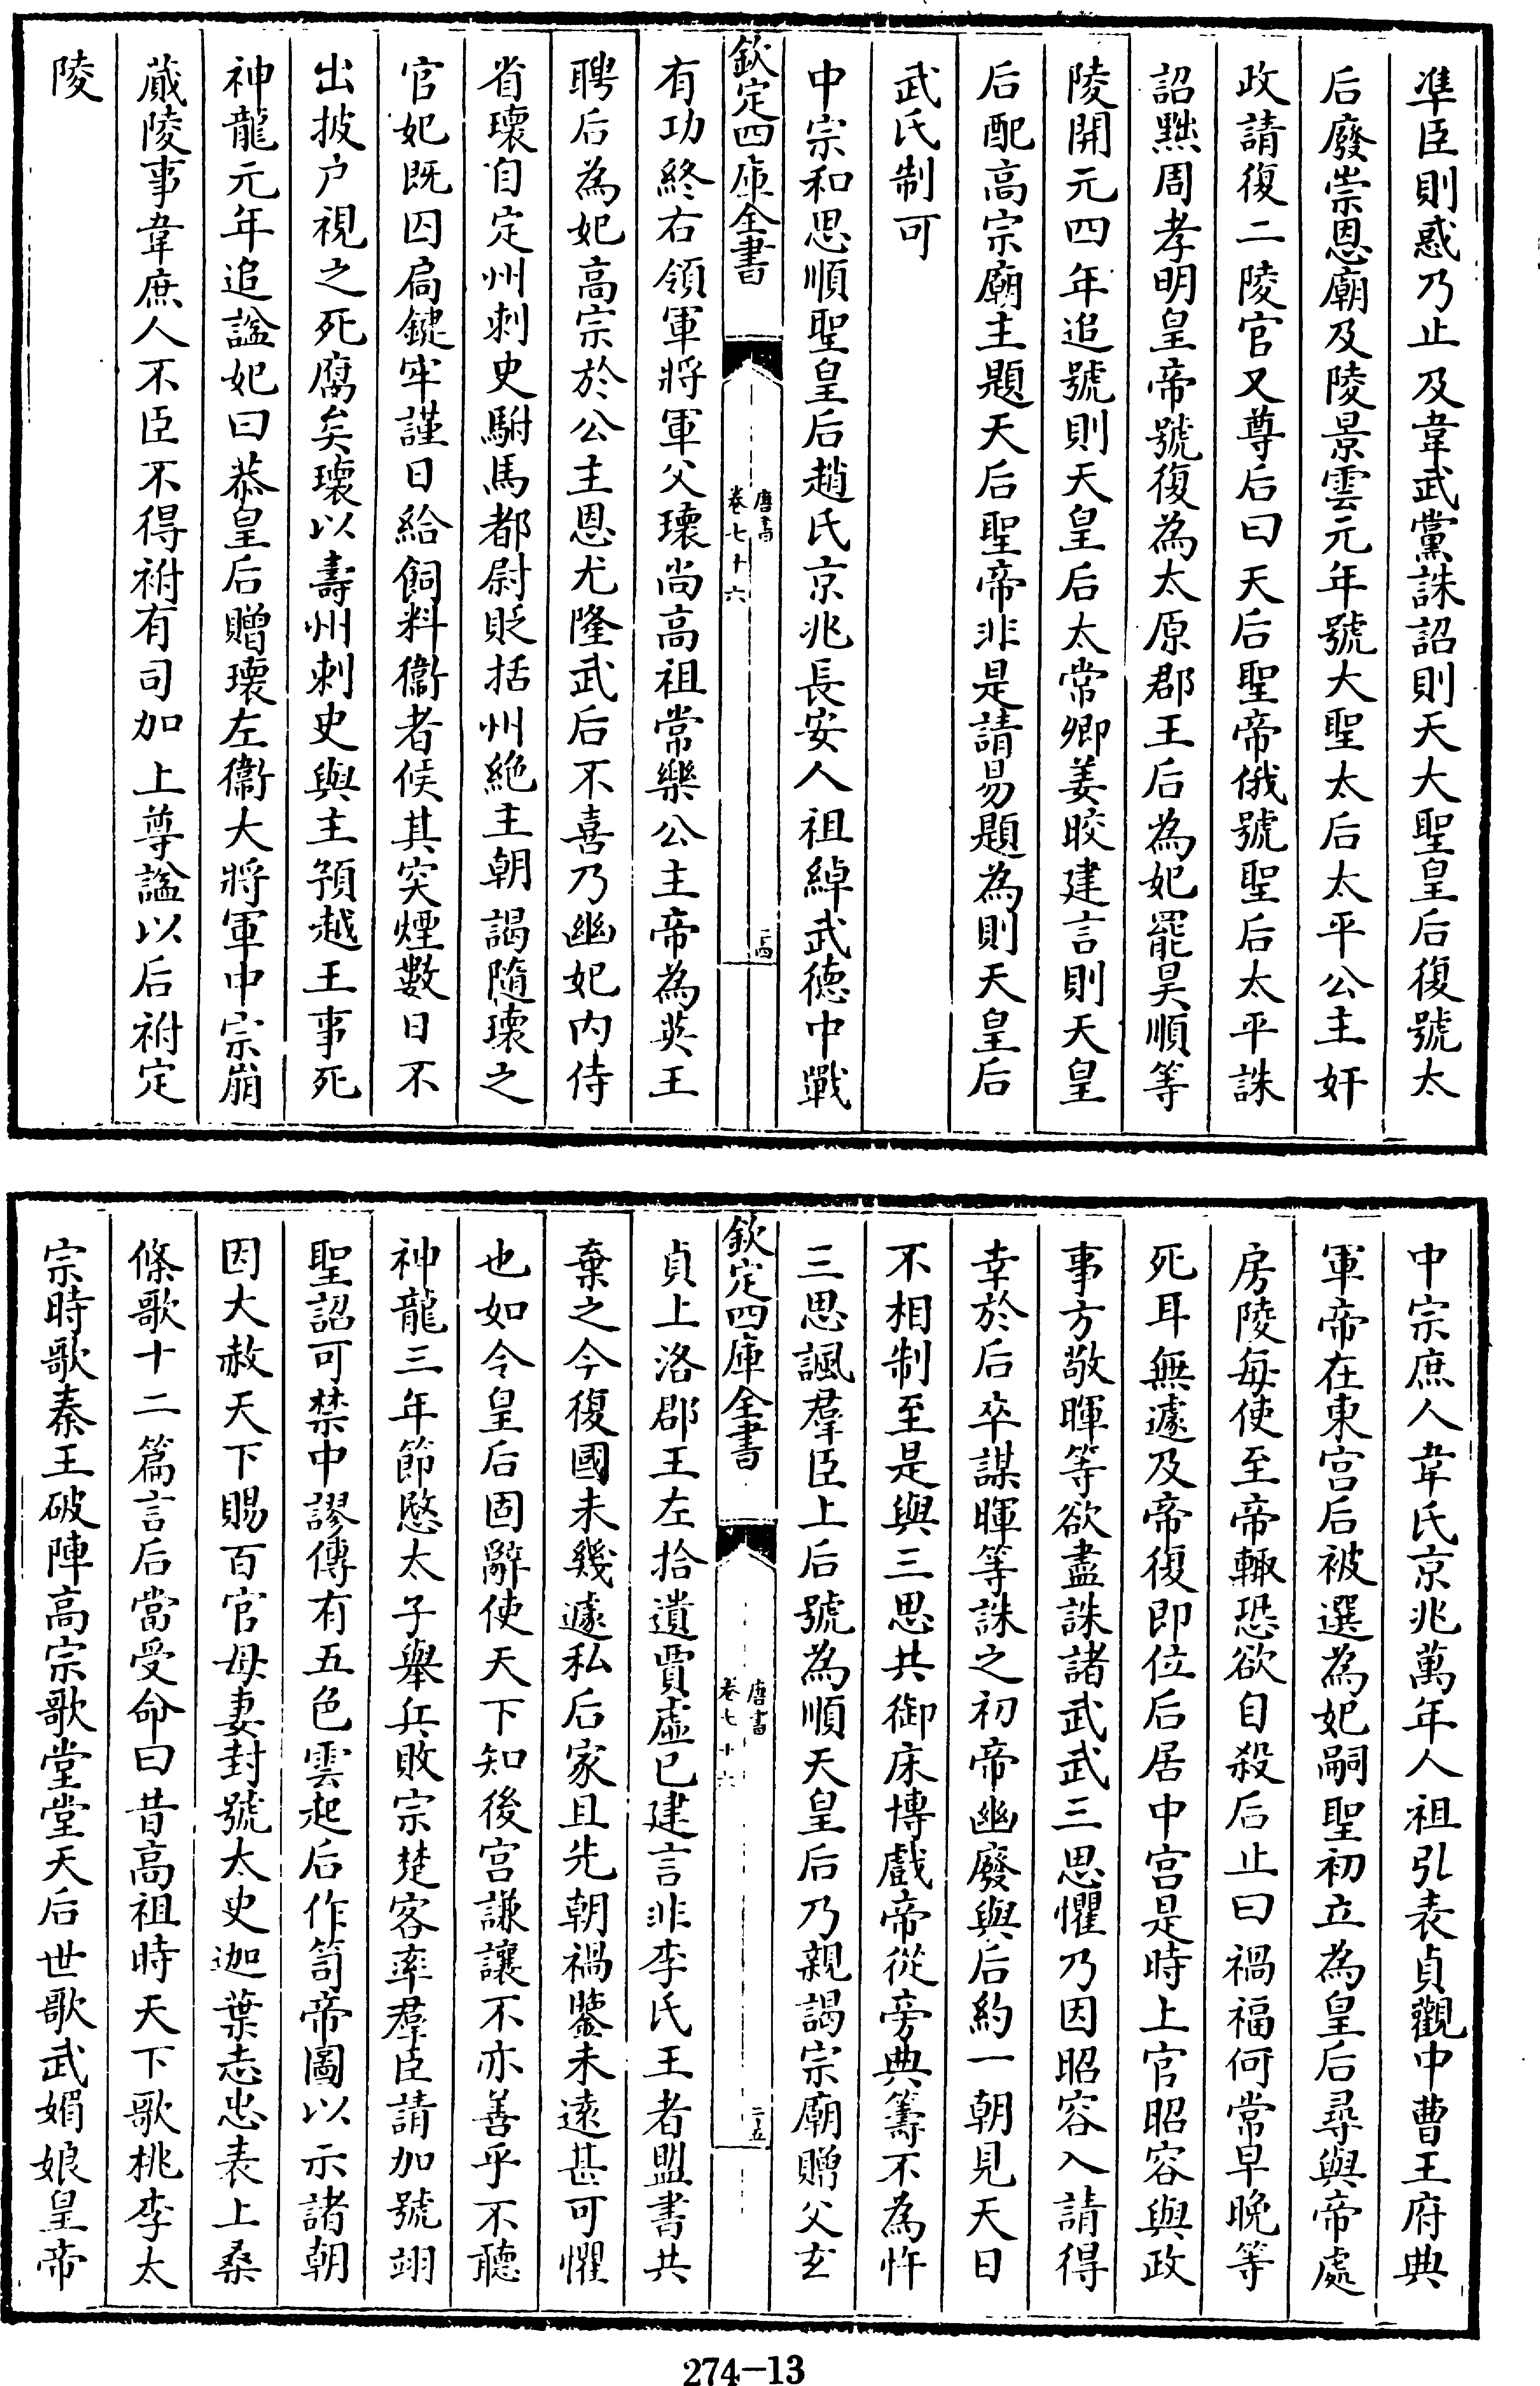 準臣則惑乃止及韋武黨誅詔則天大聖皇后復號太
后廢崇恩廟及陵景雲元年號大聖太后太平公主奸
政請復二陵官又尊后曰天后聖帝俄號聖后太平誅
詔黜周孝明皇帝號復為太原郡王后為妃罷昊順等
陵開元四年追號則天皇后太常卿姜晈建言則天皇
后配高宗廟主題天后聖帝非是請易題為則天皇后
武氏制可
中宗和思順聖皇后趙氏京兆長安人祖綽武德中戰
欽定四庫全書
唐書
卷七十六
二四
有功終右領軍將軍父瓌尚高祖常樂公主帝為英王
聘后為妃高宗於公主恩尤隆武后不喜乃幽妃內侍
省瓌自定州刺史駙馬都尉貶括州絶主朝謁隨瓌之
官妃既囚扃鍵牢謹日給飼料衞者候其突煙數日不
出披户視之死腐矣瓌以壽州刺史與主預越王事死
神龍元年追諡妃曰恭皇后贈瓌左衞大將軍中宗崩
蕆陵事韋庶人不臣不得祔有司加上尊諡以后祔定
陵
中宗庶人韋氏京兆萬年人祖弘表貞觀中曹王府典
軍帝在東宫后被選為妃嗣聖初立為皇后尋與帝處
房陵每使至帝輒恐欲自殺后止曰禍福何常早晚等
死耳無遽及帝復即位后居中宫是時上官昭容與政
事方敬暉等欲盡誅諸武武三思懼乃因昭容入請得
幸於后卒謀暉等誅之初帝幽廢與后約一朝見天日
不相制至是與三思共御床博戲帝從旁典籌不為忤
三思諷羣臣上后號為順天皇后乃親謁宗廟贈父玄
欽定四庫全書
唐書
卷七十六
二五
貞上洛郡王左拾遺賈虛已建言非李氏王者盟書共
棄之今復國未幾遽私后家且先朝禍鑒未遠甚可懼
也如令皇后固辭使天下知後宫謙讓不亦善乎不聽
神龍三年節愍太子舉兵敗宗楚客率羣臣請加號翊
聖詔可禁中謬傳有五色雲起后作笥帝圖以示諸朝
因大赦天下賜百官母妻封號太史迦葉志忠表上桑
條歌十二篇言后當受命曰昔高祖時天下歌桃李太
宗時歌秦王破陣高宗歌堂堂天后世歌武媚娘皇帝
274-13